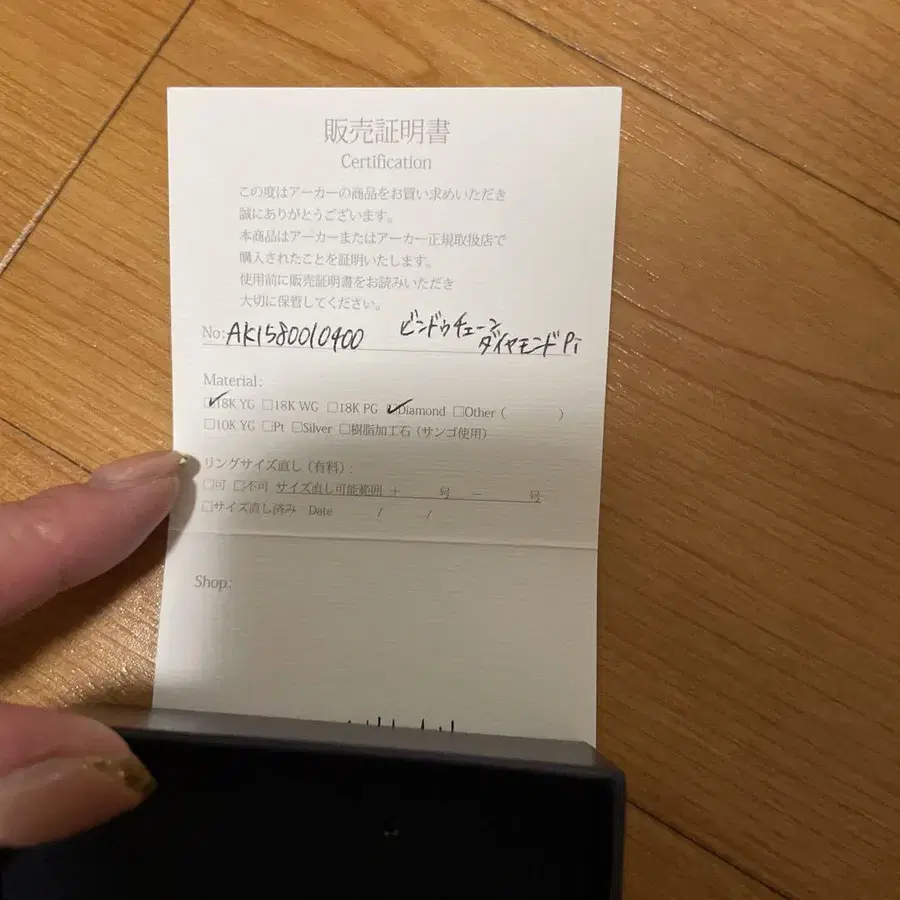 販売証明書
Certification
この度はアーカーの商品をお買い求めいただき
誠にありがとうございます。
本商品はアーカーまたはアーカー正規取扱店で
購入されたことを証明いたします。
使用前に販売証明書をお読みいただき
大切に保管してください。
No: AK1580010400 ビンドゥチェーン
ダイヤモンド Pi
Material:
☑18K YG □18K WG □18K PG ☑Diamond □Other ( )
□10K YG □Pt □Silver □樹脂加工石 (サンゴ使用)
リングサイズ直し (有料) :
□可 □不可 サイズ直し可能範囲 + 号 − 号
□サイズ直し済み Date / /
Shop: